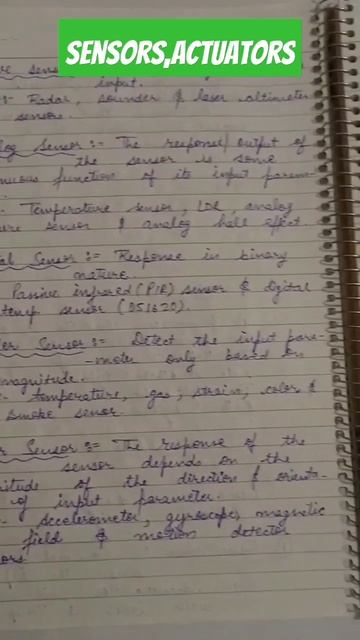 SENSORS,ACTUATORS
input.
Radar, sounder & laser altimeter
sensor.
Sensor :- The response/output of
the sensor is some
function of its input param-
Temperature sensor, LDR, analog
sensor & analog hall effect.
Sensor :- Response in binary
nature.
Passive infrared (PIR) sensor & digital
temp. sensor (DS1620).
Sensor :- Detect the input para-
-meter only based on
magnitude.
temperature, gas, strain, color &
smoke sensor.
Sensor :- The response of the
sensor depends on the
of the direction & orienta-
of input parameter.
accelerometer, gyroscope, magnetic
field & motion detector